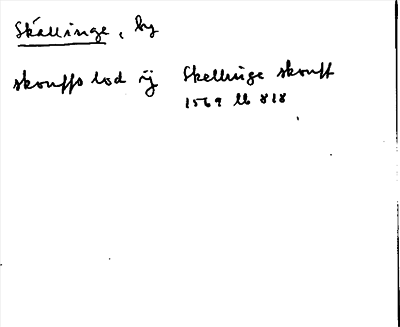 Skällinge, by
skouffs lod ij Skellinge skouff
1569 ll 818